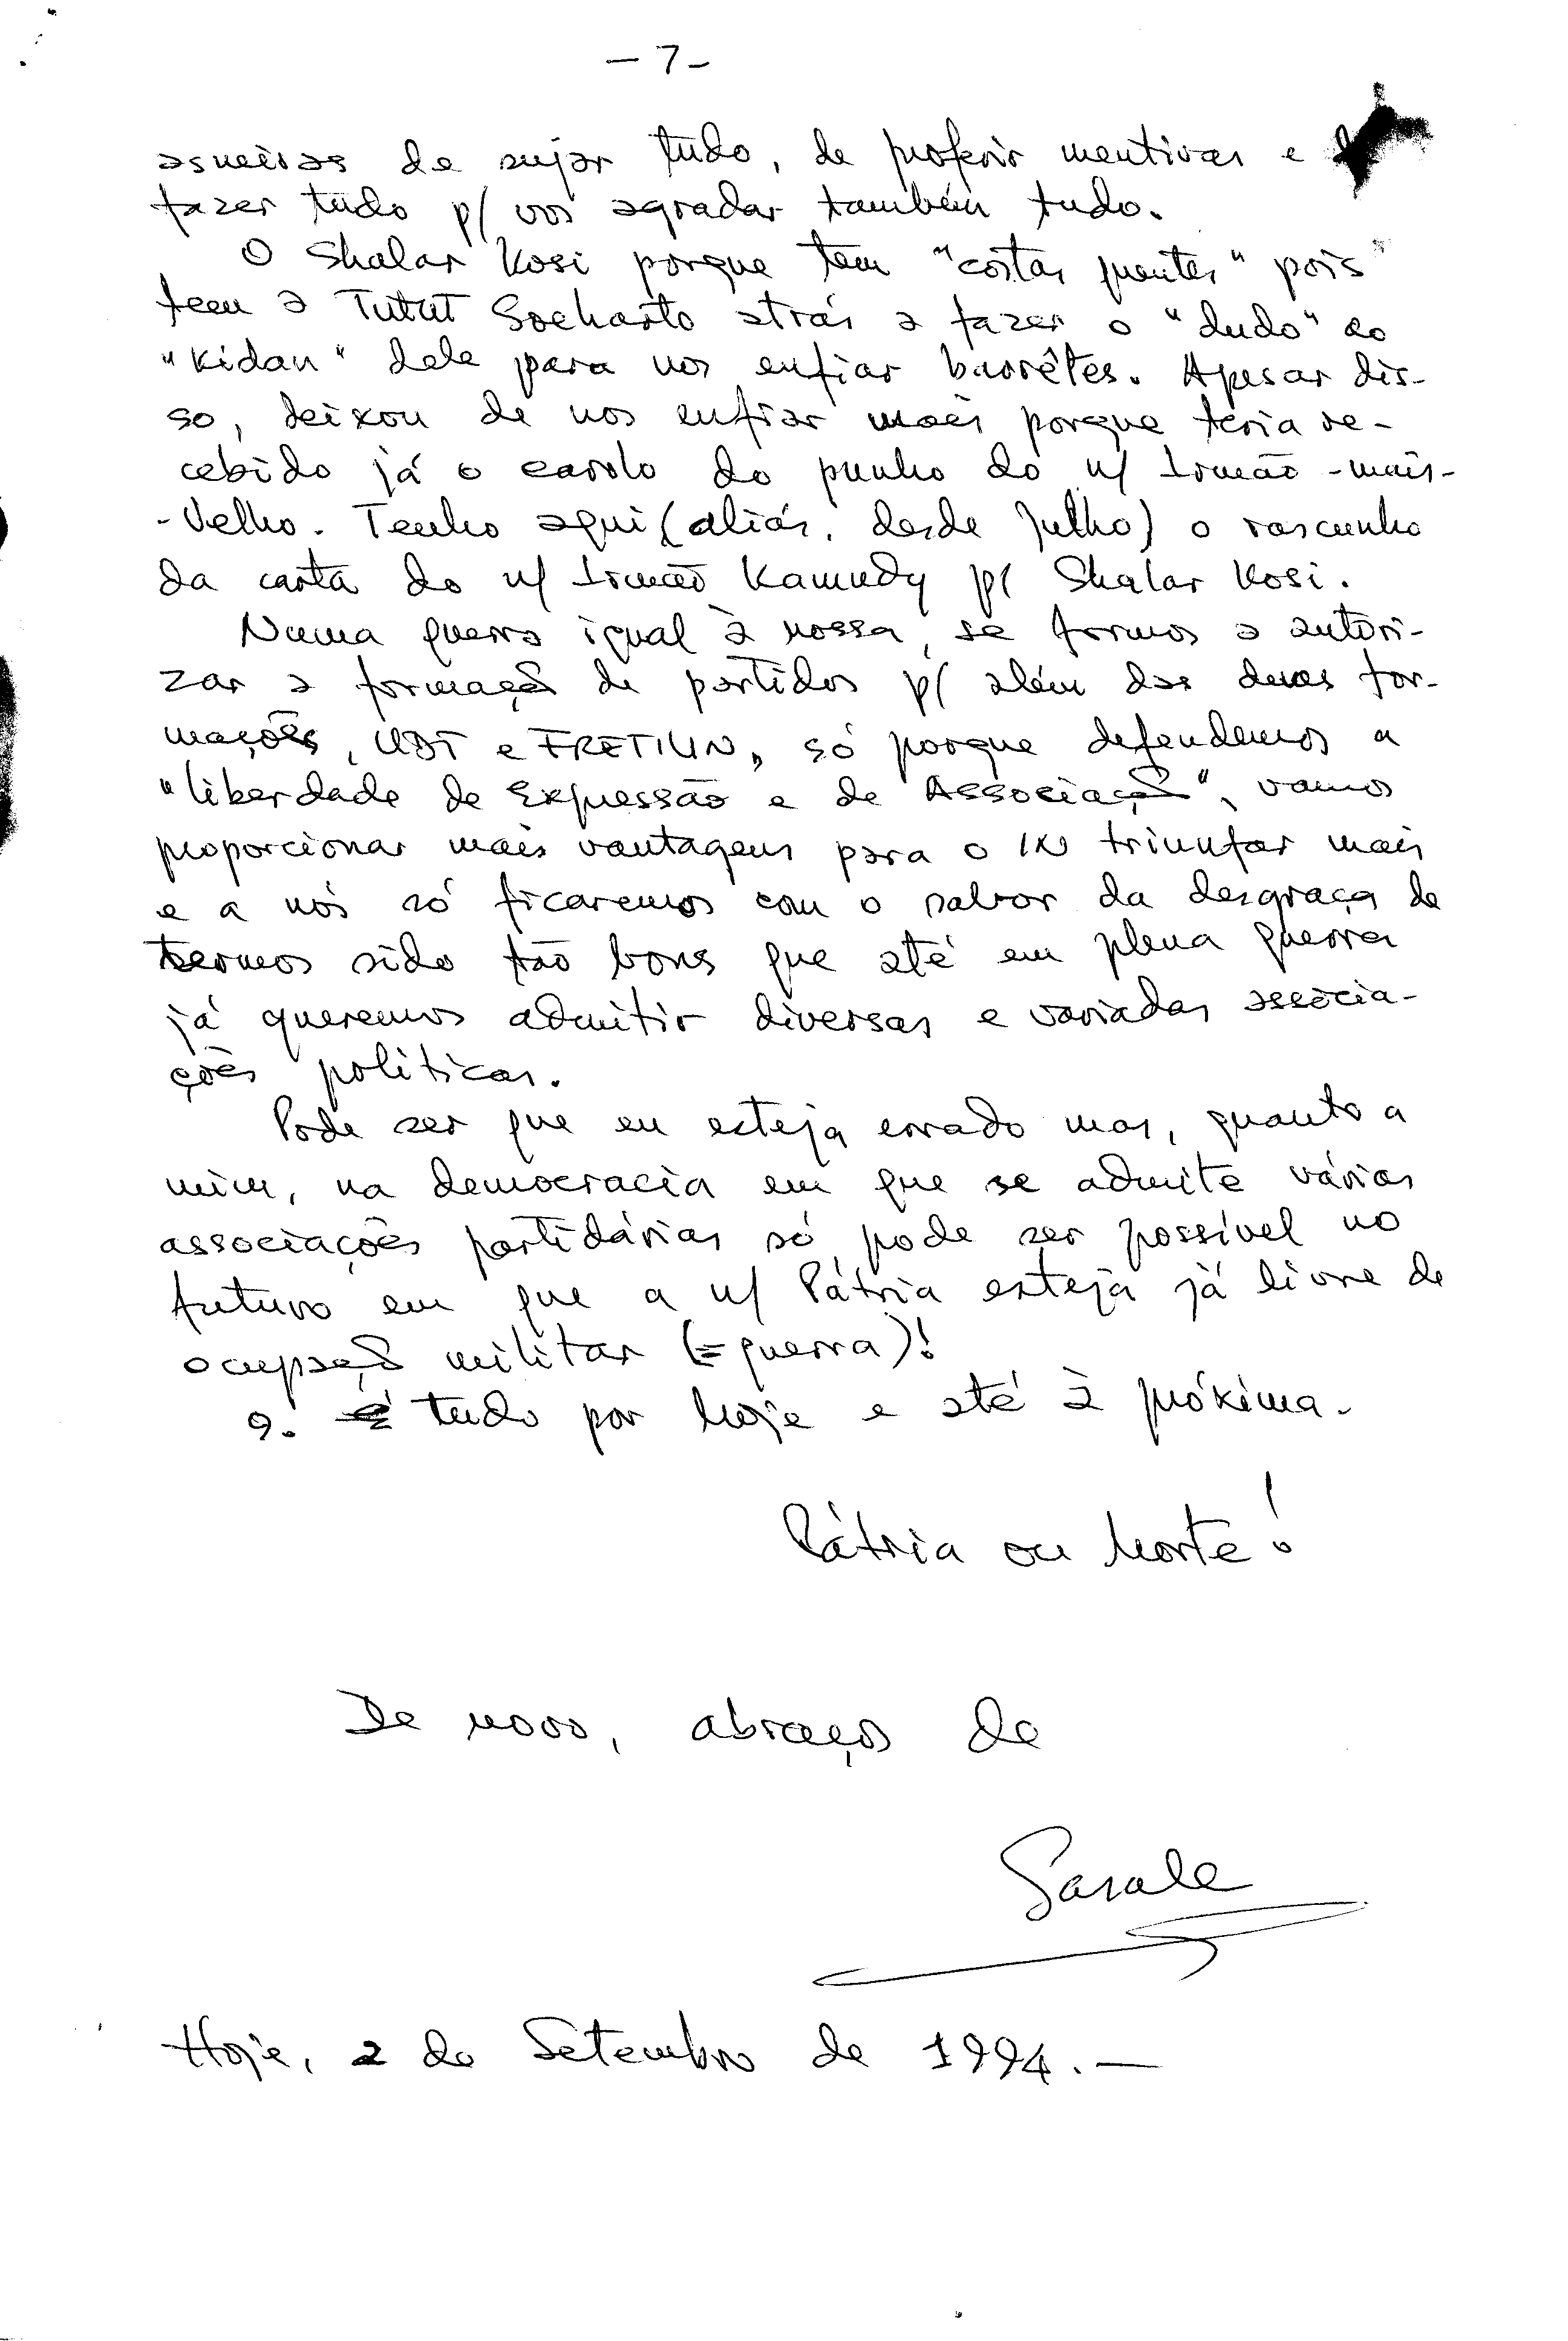 - 7 -
asneiras de sujar tudo, de proferir mentiras e de
fazer tudo p/ vos agradar também tudo.
O Shalar Kosi porque tem "costas quentes" pois
tem a Tutut Soeharto atrás a fazer o "dudo" ao
"Kidan" dele para nos enfiar barrêtes. Apesar dis-
so, deixou de nos enfiar mais porque teria re-
cebido já o carolo do punho do n/ Irmão-mais-
-Velho. Tenho aqui (aliás, desde Julho) o rascunho
da carta do n/ Irmão Kamudy p/ Shalar Kosi.
Numa guerra igual à nossa, se formos a autori-
zar a formação de partidos p/ além das duas for-
mações, UDT e FRETILIN, só porque defendemos a
"liberdade de Expressão e de Associação", vamos
proporcionar mais vantagens para o IN triunfar mais
e a nós só ficaremos com o sabor da desgraça de
termos sido tão bons que até em plena guerra
já queremos admitir diversas e variadas associa-
ções políticas.
Pode ser que eu esteja errado mas, quanto a
mim, na democracia em que se admite várias
associações partidárias só pode ser possível no
futuro em que a n/ Pátria esteja já livre de
ocupação militar (= guerra)!
9. É tudo por hoje e até à próxima.
Pátria ou Morte!
De novo, abraços de
Sasale
Hoje, 2 de Setembro de 1994. —